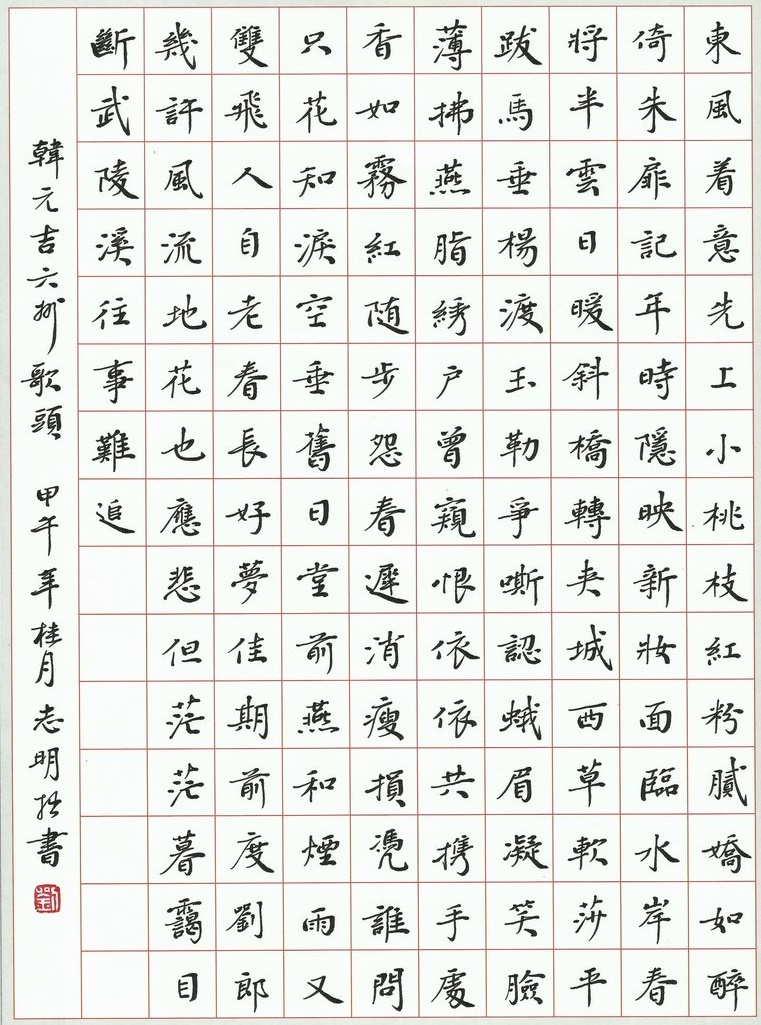 東風着意先上小桃枝紅粉膩嬌如醉
倚朱扉記年時隱映新妝面臨水岸春
將半雲日暖斜橋轉夾城西草軟莎平
跋馬垂楊渡玉勒爭嘶認蛾眉凝笑臉
薄拂燕脂綉户曾窺恨依依共携手處
香如霧紅随步怨春遲消瘦損凴誰問
只花知淚空垂舊日堂前燕和煙雨又
雙飛人自老春長好夢佳期前度劉郎
幾許風流地花也應悲但茫茫暮靄目
斷武陵溪往事難追
韓元吉六州歌頭 甲午年桂月志明拙書
劉